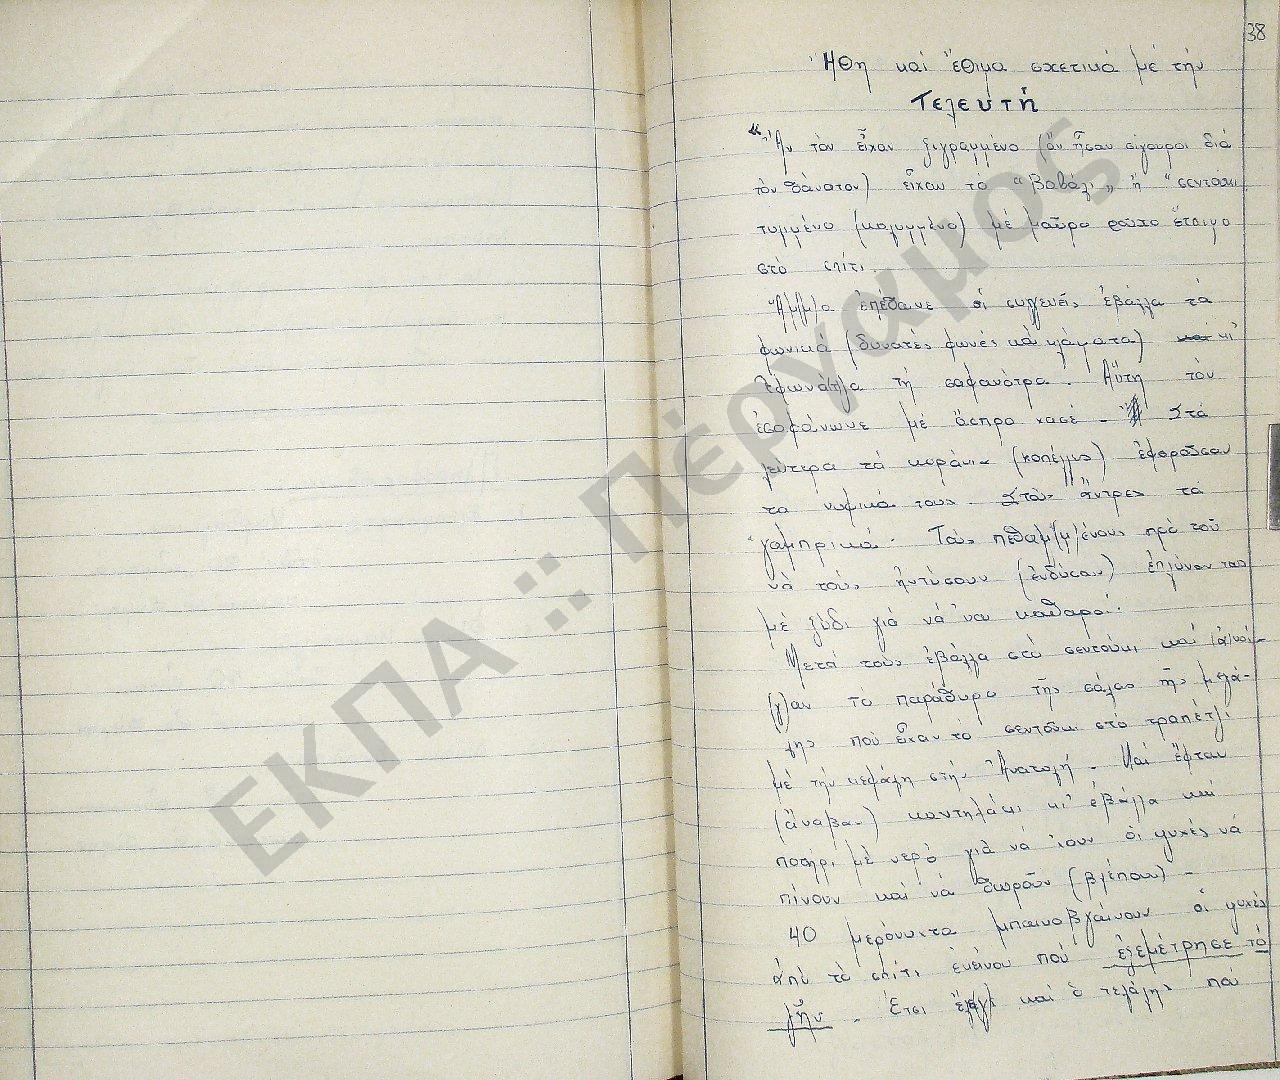 38
Ἤθη καί ἔθιμα σχετικά μέ τήν
Τελευτή
"Ἄν τόν εἶχαν ξιγραμμένο (ἄν ἦσαν σίγουροι διά
τόν θάνατον) εἶχαν τό "βαβάλι" ἤ "σεντούκι
τυλιμένο (καλυμμένο) μέ μαῦρο ροῦχο ἕτοιμο
στό σπίτι
Ἅμ(μ)α ἐπέθανε οἱ συγγενεῖς ἐβάλλα τά
φωνικά (δυνατές φωνές καί κλάματα) κι'
ἐφωνάτζα τή σαφανότρα. Αὕτη τόν
ἐσοφάνωνε μέ ἄσπρο χασέ - Στά
λεύτερα τά κοράνια (κοπέλλες) ἐφοροῦσαν
τα νυφικά τους. Στούς ἄντρες τά
γαμπρικά. Τούς πεθαμ(μ)ένους πρό τοῦ
νά τούς ἠντύσουν (ἐνδύσουν) ἐπλύναν τους
μέ ξύδι γιά νά 'ναι καθαροί.
Μετά τούς ἐβάλλα στό σεντούκι καί (ἀ)νοί-
(γ)αν τό παράθυρο τῆς σάλας τῆς μεγά-
λης πού εἶχαν τό σεντούκι στό τραπέτζι
μέ τήν κεφαλή στήν Ἀνατολή. Καί ἔφταν
(ἄναβα-) καντηλάκι κι' ἐβάλλα καί
ποτήρι μέ νερό γιά νά 'χουν οἱ ψυχές νά
πίνουν καί νά θωροῦν (βλέπουν) -
40 μερόνυχτα μπαινοβγαίνουν οἱ ψυχές
ἀπό τό σπίτι ἐκείνου πού ἐξεμέτρησε τό
ζῆν. Ἔτσι ἔλεγε καί ὁ τελάλης πού
ΕΚΠΑ :: Πέργαμος